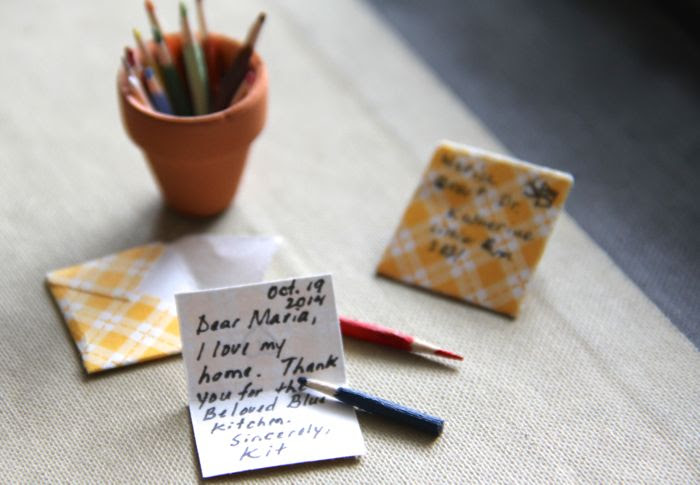 Oct. 19
2014
Dear Maria,
I love my
home. Thank
you for the
Beloved Blue
Kitchen.
Sincerely,
Kit
Katherine